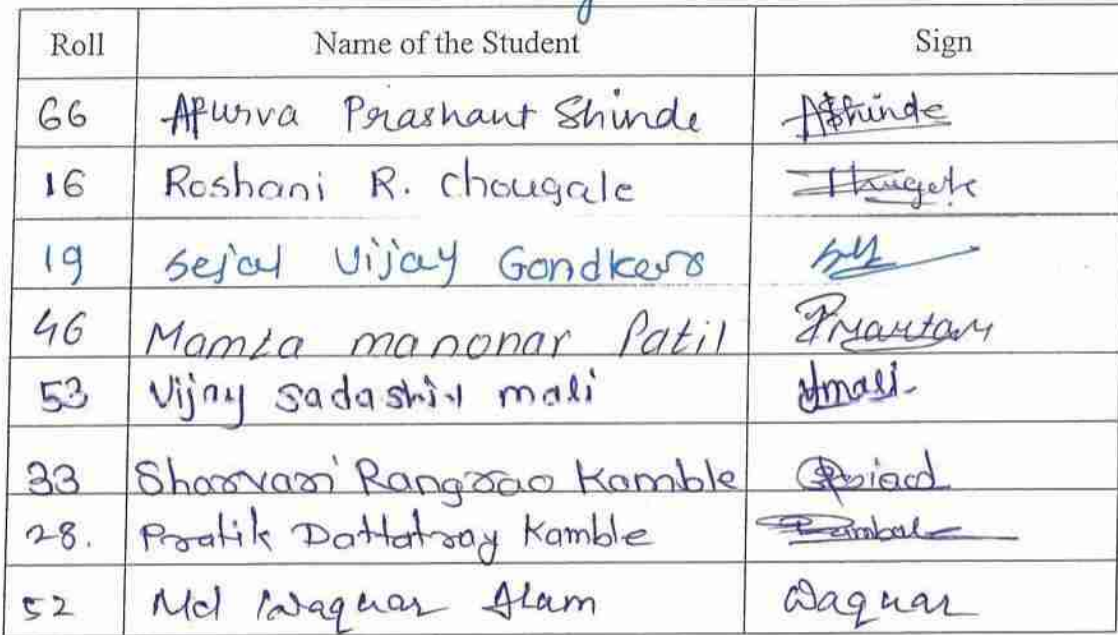 Roll Name of the Student Sign
66 Apurva Prashant Shinde AShinde
16 Roshani R. Chougale
19 Sejal Vijay Gondkers
46 Mamta manonar Patil
53 Vijay Sadashiv mali Vmali.
33 Sharvari Rangrao Kamble
28. Pratik Dattatray Kamble
52 Md Waquar Alam Waquar